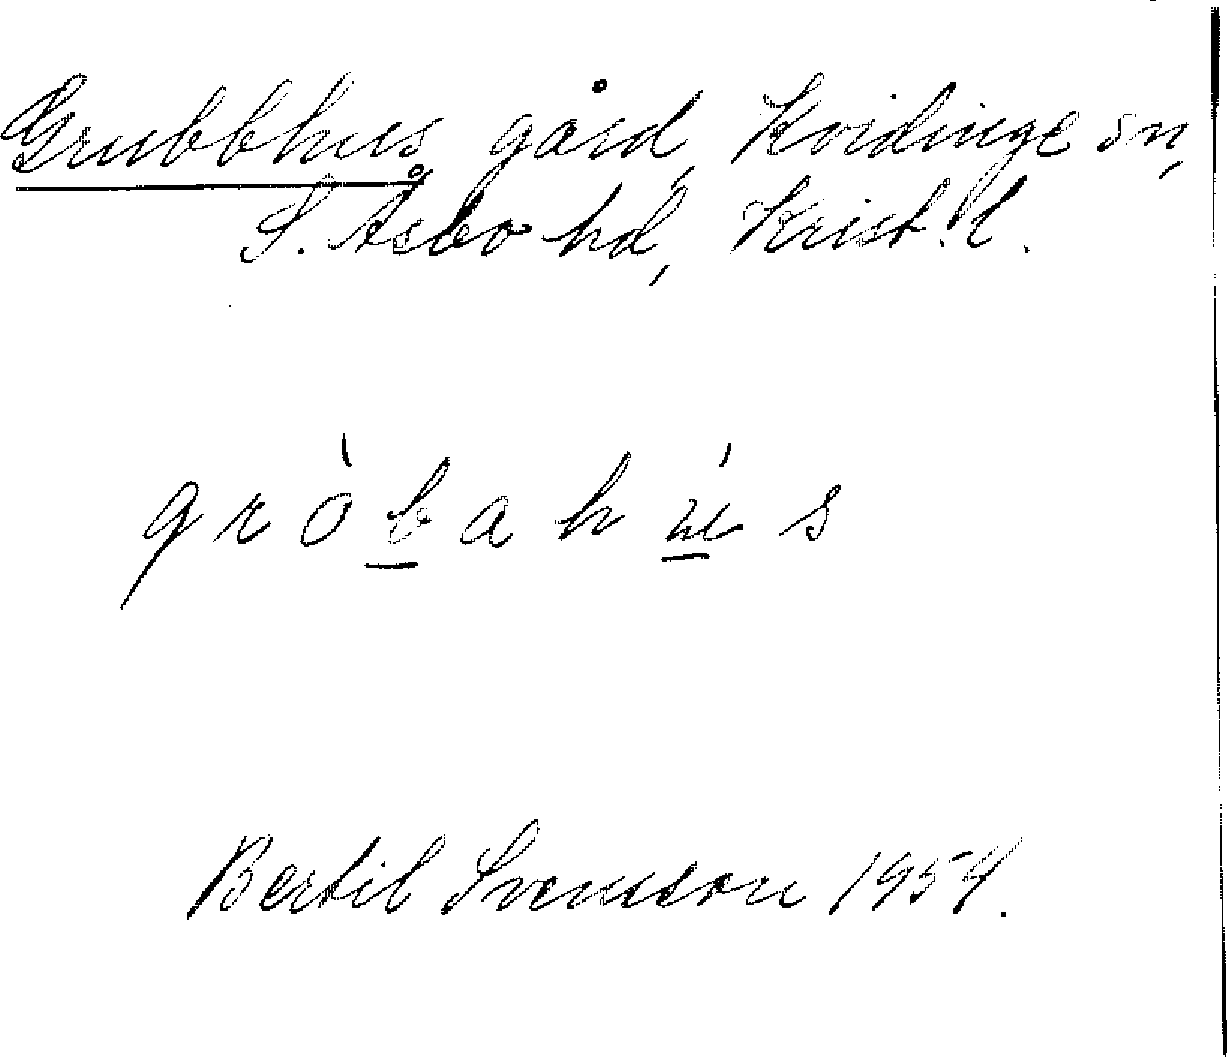 Grubbhus, gård, Kvidinge sn,
S. Åsbo hd, Krist. l.
gròbahús
Bertil Svensson 1954.